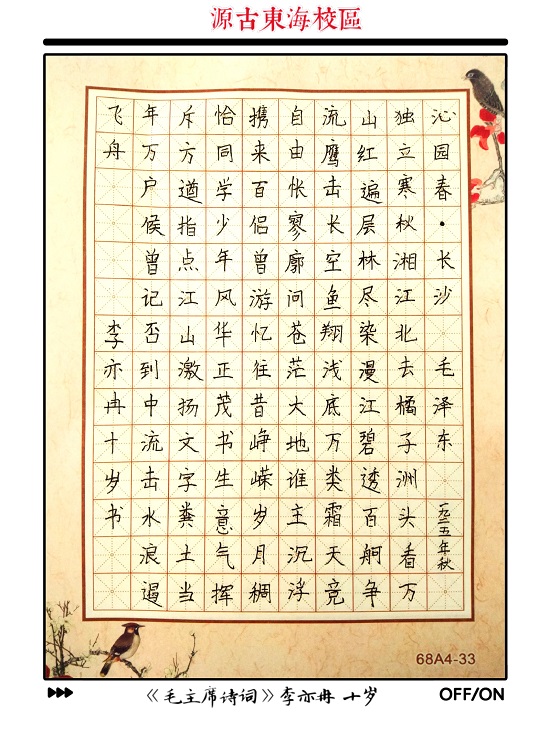 源古東海校區
沁园春·长沙 毛泽东 一九二五年秋
独立寒秋湘江北去橘子洲头看万
山红遍层林尽染漫江碧透百舸争
流鹰击长空鱼翔浅底万类霜天竞
自由怅寥廓问苍茫大地谁主沉浮
携来百侣曾游忆往昔峥嵘岁月稠
恰同学少年风华正茂书生意气挥
斥方遒指点江山激扬文字粪土当
年万户候曾记否到中流击水浪遏
飞舟 李亦冉十岁书
68A4-33
《毛主席诗词》李亦冉 十岁
OFF/ON